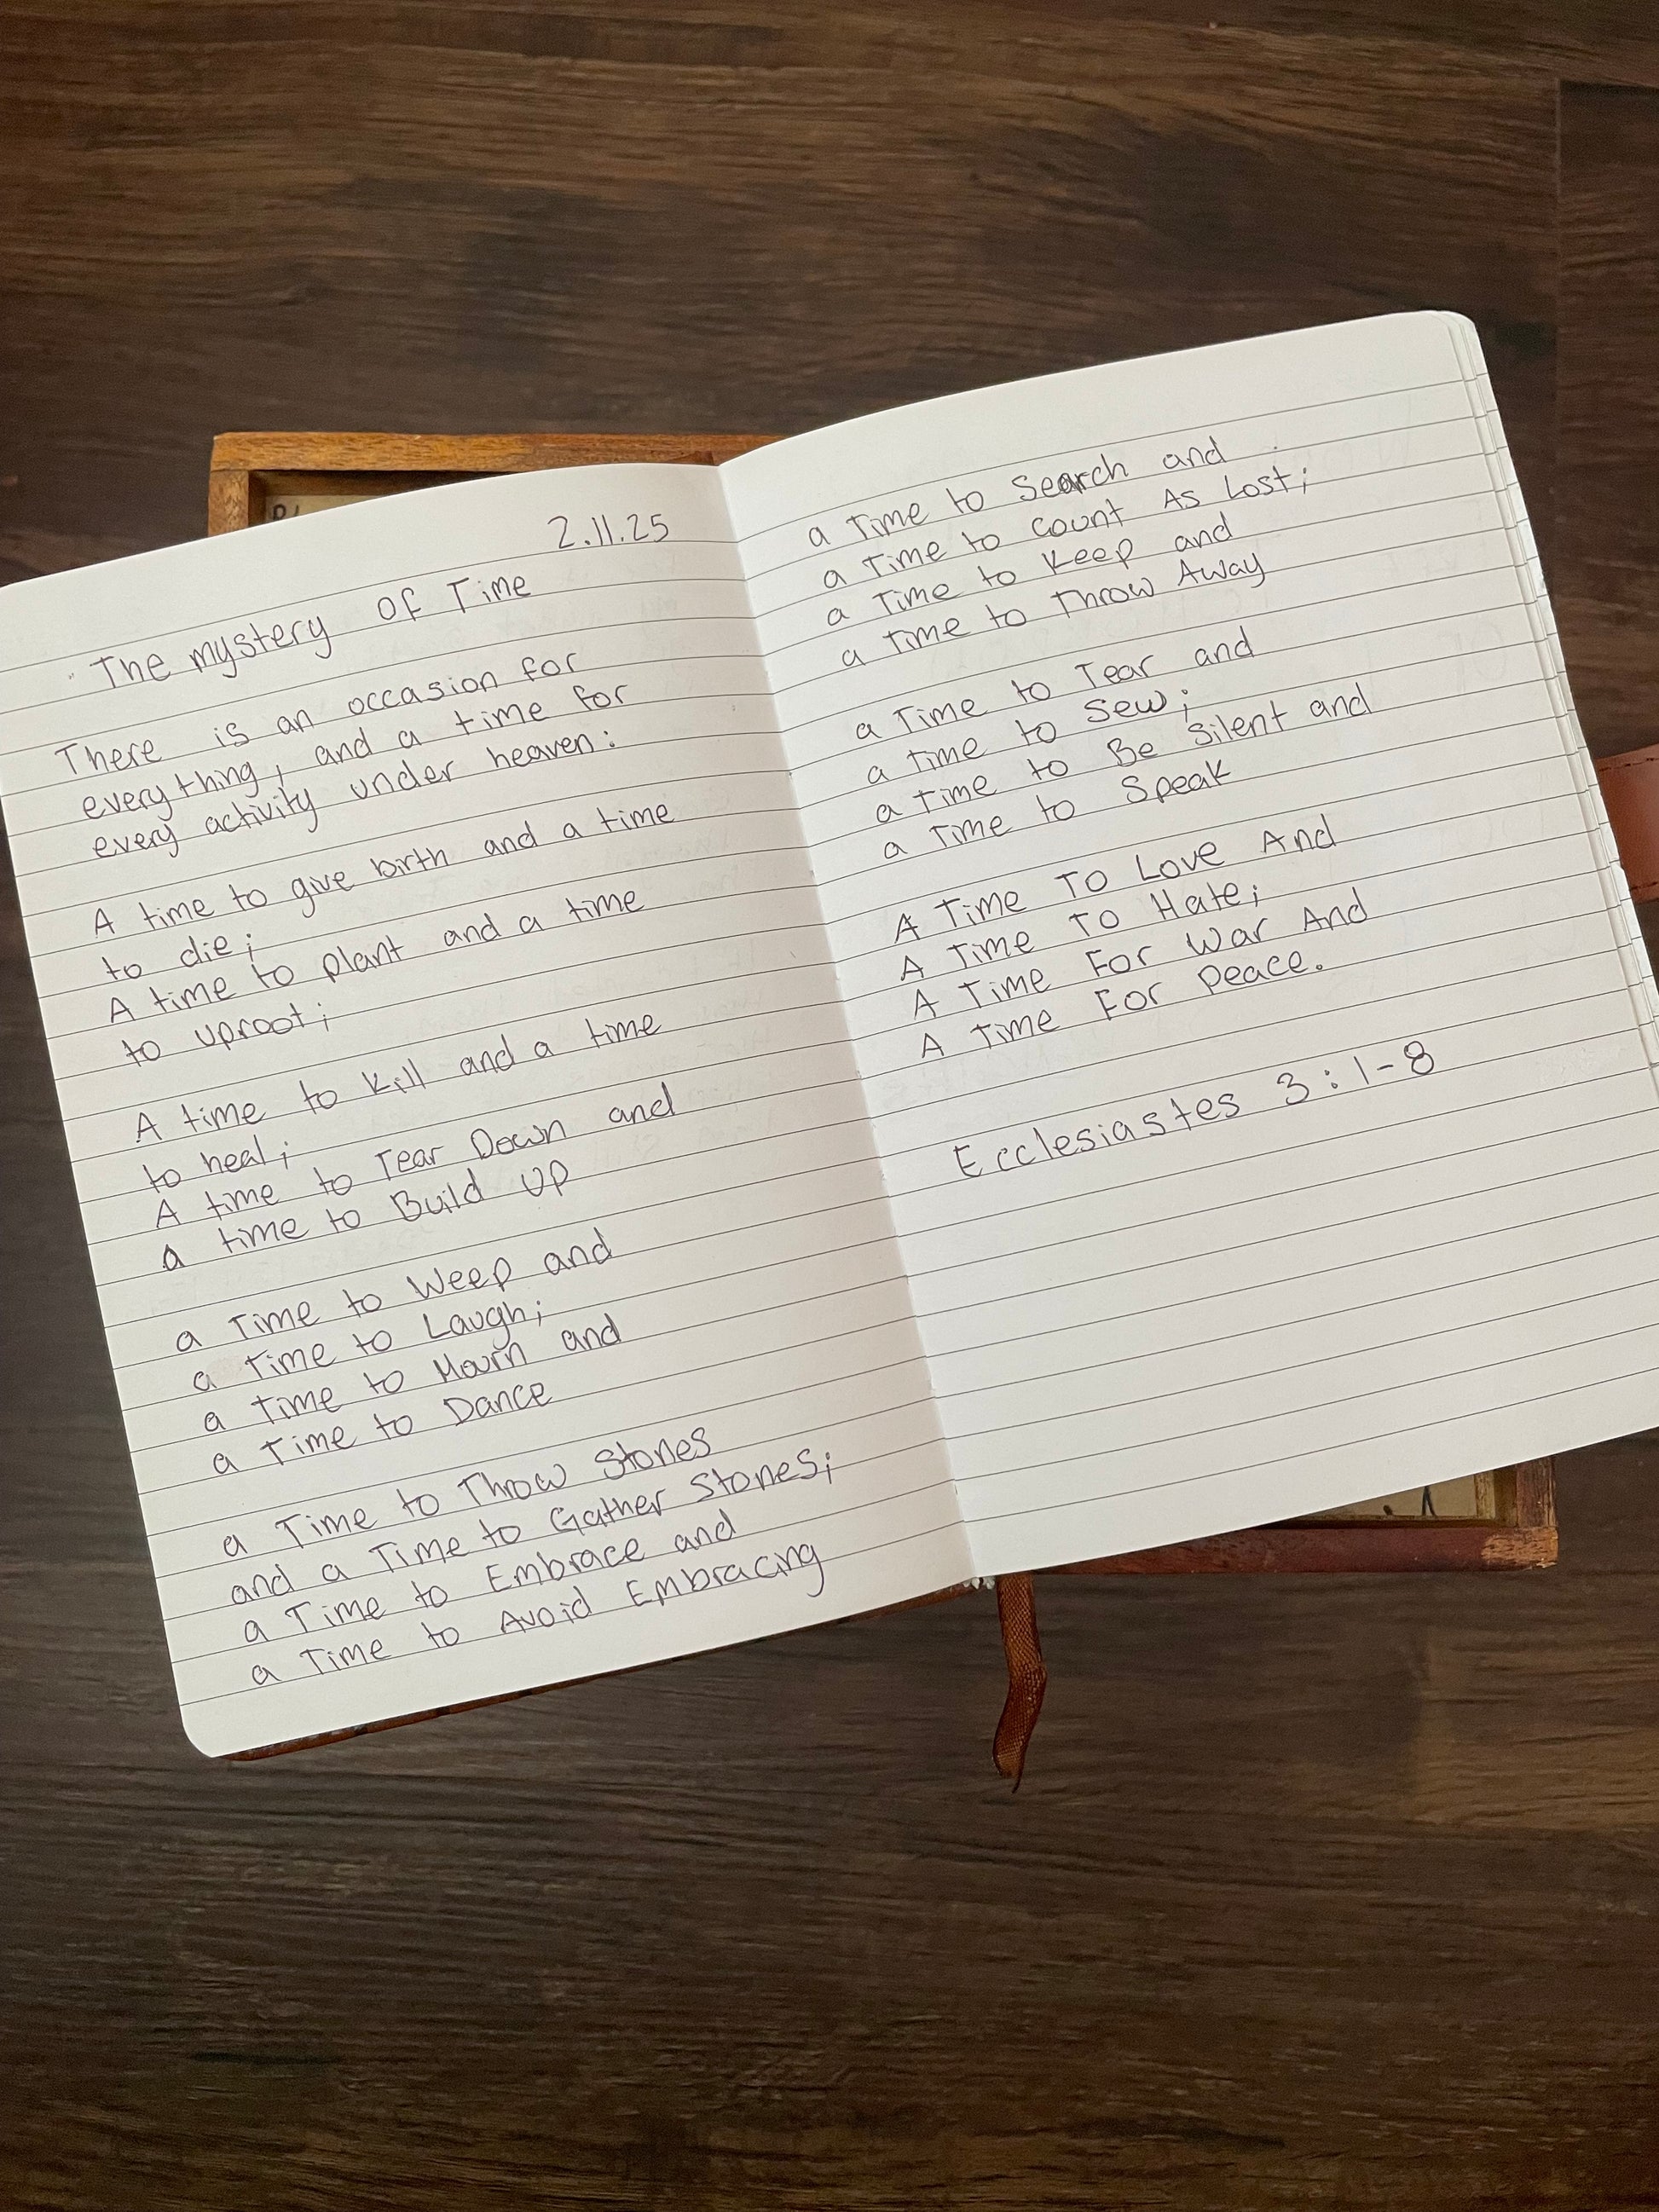 2.11.25
The mystery of Time
There is an occasion for
everything, and a time for
every activity under heaven:
A time to give birth and a time
to die;
A time to plant and a time
to uproot;
A time to kill and a time
to heal;
A time to Tear Down and
a time to Build Up
a Time to Weep and
a Time to Laugh;
a Time to Mourn and
a Time to Dance
a Time to Throw Stones
and a Time to Gather Stones;
a Time to Embrace and
a Time to Avoid Embracing
a Time to Search and
a Time to Count As Lost;
a Time to Keep and
a Time to Throw Away
a Time to Tear and
a Time to Sew;
a Time to Be Silent and
a Time to Speak
A Time To Love And
A Time To Hate;
A Time For War And
A Time For Peace.
Ecclesiastes 3:1-8